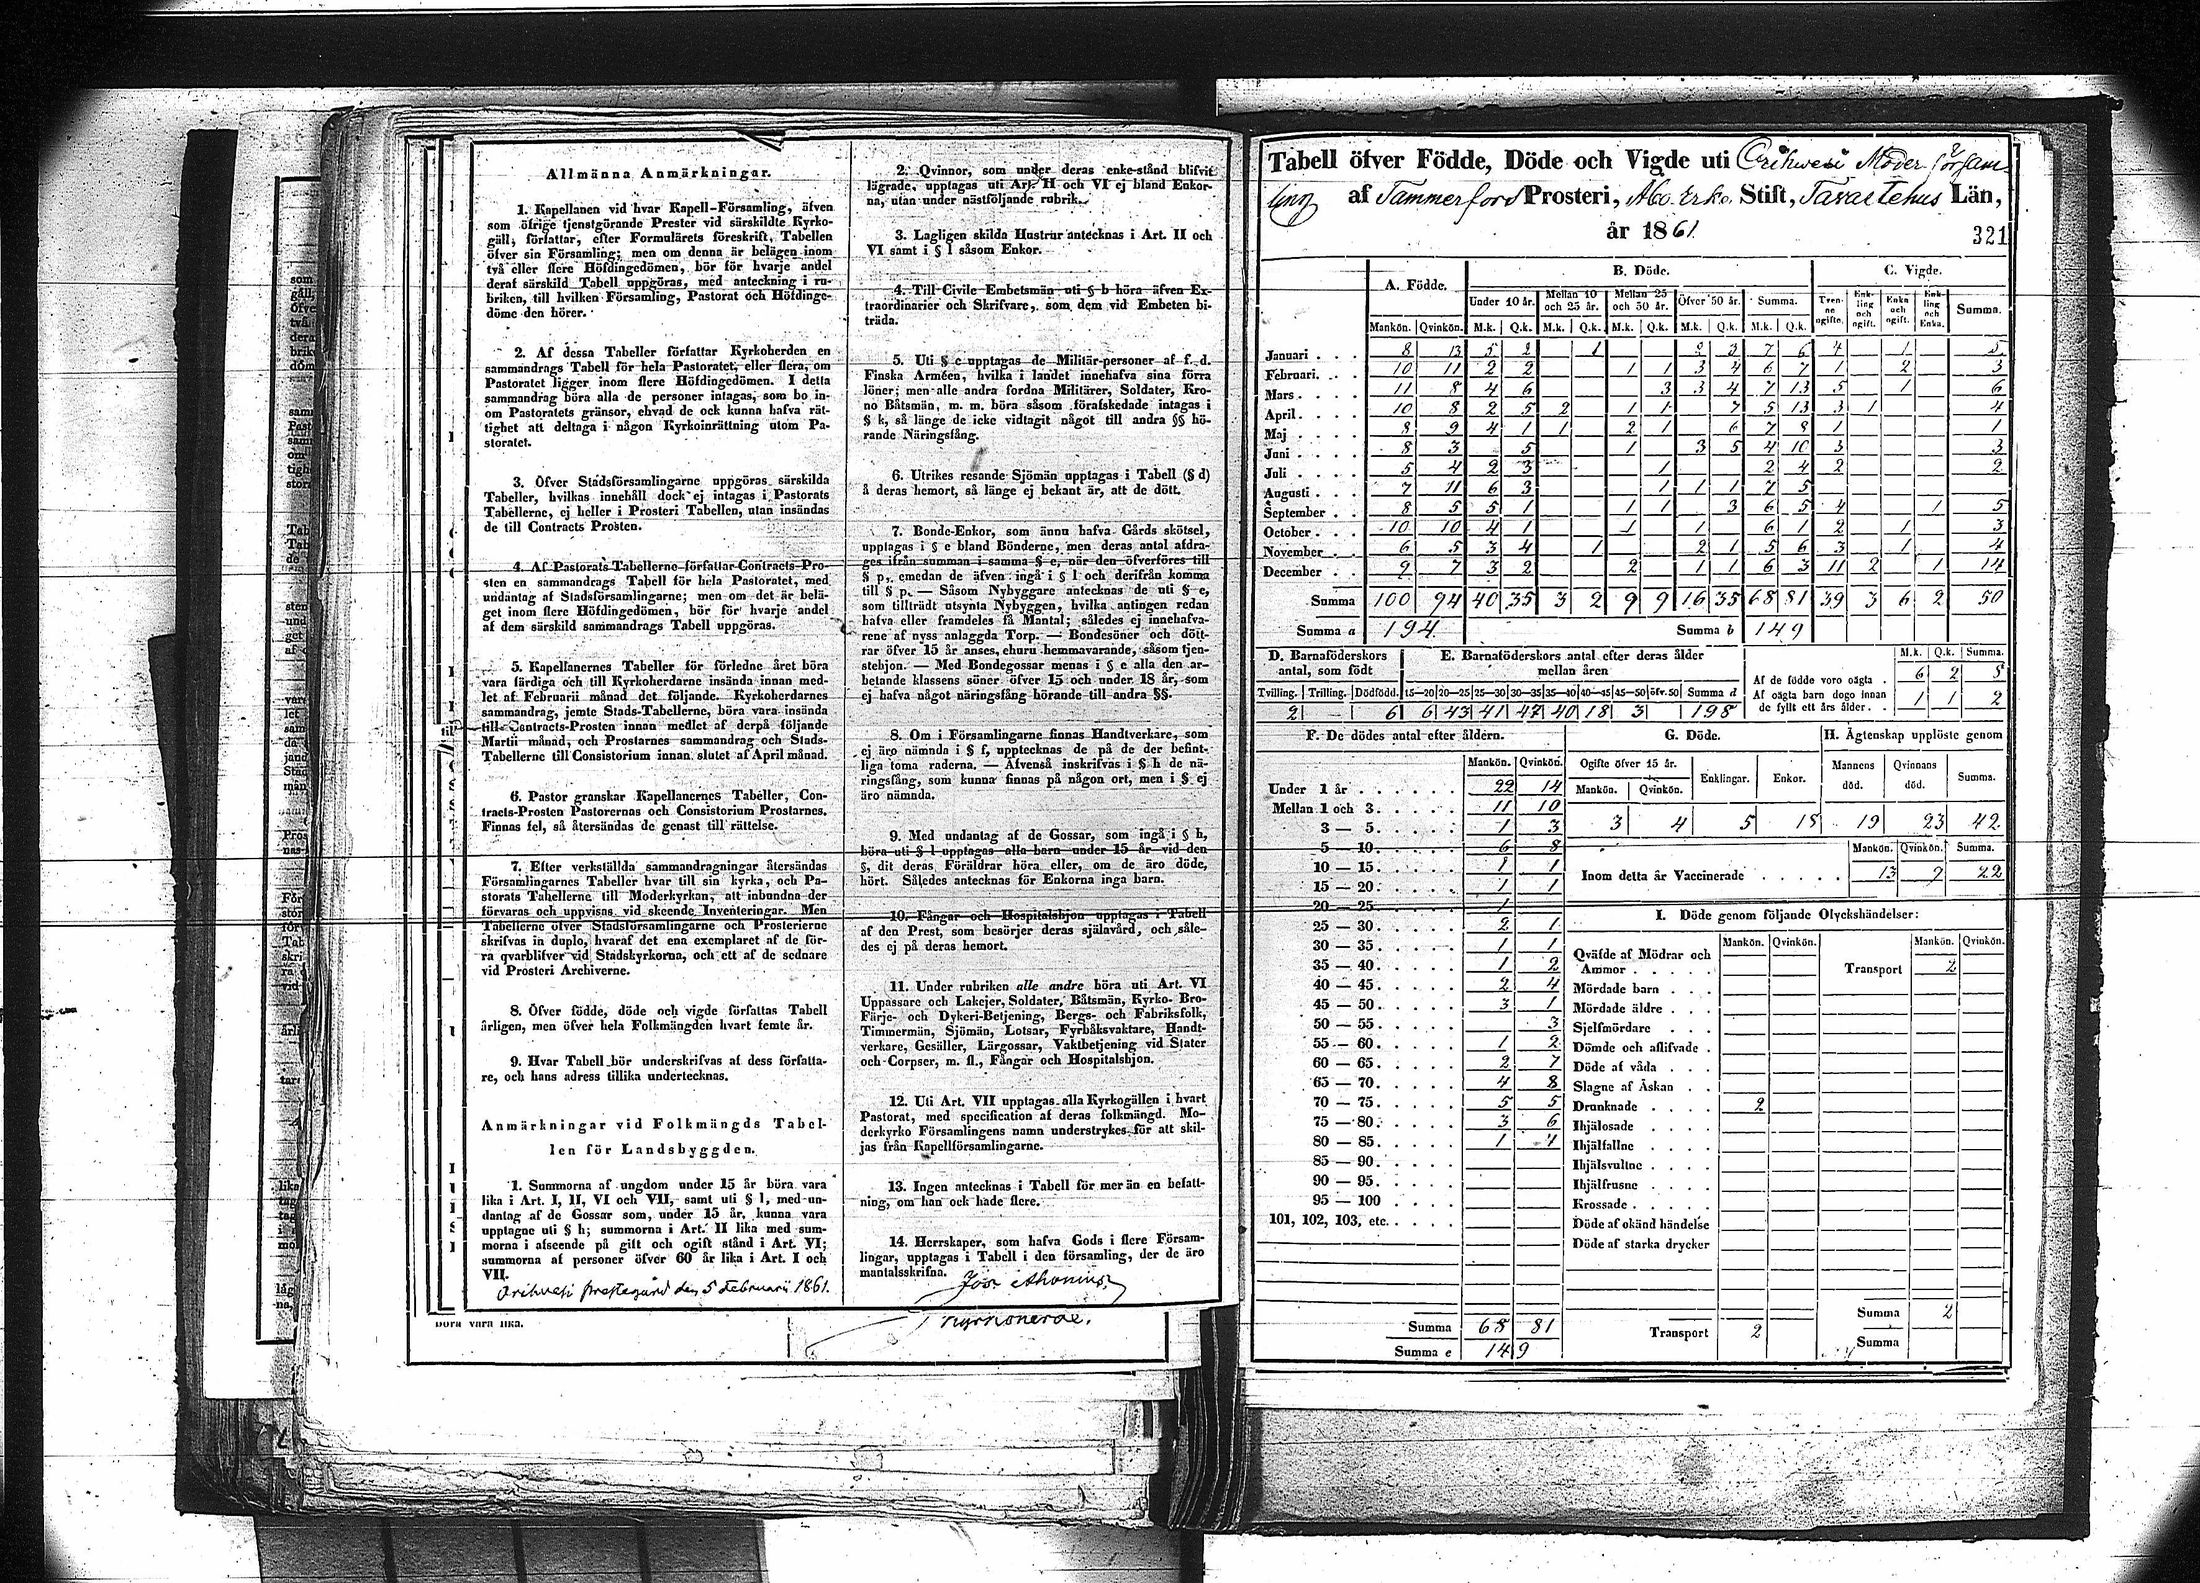 Allmänna Anmärkningar.
1. Kapellanen vid hvar Kapell-Församling, äfven
som öfrige tjenstgörande Prester vid särskildte Kyrko-
gäll, författar, efter Formulärets föreskrift, Tabellen
öfver sin Församling; men om denna är belägen inom
två eller flere Höfdingedömen, bör för hvarje andel
deraf särskild Tabell uppgöras, med anteckning i ru-
briken, till hvilken Församling, Pastorat och Höfdinge-
döme den hörer.
2. Af dessa Tabeller författar Kyrkoherden en
sammandrags Tabell för hela Pastoratet, eller flera, om
Pastoratet ligger inom flere Höfdingedömen. I detta
sammandrag böra alla de personer intagas, som bo in-
om Pastoratets gränsor, ehvad de ock kunna hafva rät-
tighet att deltaga i någon Kyrkoinrättning utom Pa-
storatet.
3. Öfver Stadsförsamlingarne uppgöras särskilda
Tabeller, hvilkas innehåll dock ej intagas i Pastorats
Tabellerne, ej heller i Prosteri Tabellen, utan insändas
de till Contracts Prosten.
4. Af Pastorats Tabellerne författar Contracts-Pro-
sten en sammandrags Tabell för hela Pastoratet, med
undantag af Stadsförsamlingarne; men om det är belä-
get inom flere Höfdingedömen, bör för hvarje andel
af dem särskild sammandrags Tabell uppgöras.
5. Kapellanernes Tabeller för förledne året böra
vara färdiga och till Kyrkoherdarne insända innan med-
let af Februarii månad det följande. Kyrkoherdarnes
sammandrag, jemte Stads-Tabellerne, böra vara insända
till Contracts-Prosten innan medlet af derpå följande
Martii månad, och Prostarnes sammandrag och Stads-
Tabellerne till Consistorium innan slutet af April månad.
6. Pastor granskar Kapellanernes Tabeller, Con-
tracts-Prosten Pastorernas och Consistorium Prostarnes.
Finnas fel, så återsändas de genast till rättelse.
7. Efter verkställda sammandragningar återsändas
Församlingarnes Tabeller hvar till sin kyrka, och Pa-
storats Tabellerne till Moderkyrkan, att inbundna der
förvaras och uppvisas vid skeende Inventeringar. Men
Tabellerne öfver Stadsförsamlingarne och Prosterierne
skrifvas in duplo, hvaraf det ena exemplaret af de för-
ra qvarblifver vid Stadskyrkorna, och ett af de sednare
vid Prosteri Archiverne.
8. Öfver födde, döde och vigde författas Tabell
årligen, men öfver hela Folkmängden hvart femte år.
9. Hvar Tabell bör underskrifvas af dess författa-
re, och hans adress tillika undertecknas.
Anmärkningar vid Folkmängds Tabel-
len för Landsbyggden.
1. Summorna af ungdom under 15 år böra vara
lika i Art. I, II, VI och VII, samt uti § l, med un-
dantag af de Gossar som, under 15 år, kunna vara
upptagne uti § h; summorna i Art. II lika med sum-
morna i afseende på gift och ogift stånd i Art. VI;
summorna af personer öfver 60 år lika i Art. I och
VII.
Orihvesi prestegård den 5 Februarii 1861.
2. Qvinnor, som under deras enke-stånd blifvit
lägrade, upptagas uti Art. II och VI ej bland Enkor-
na, utan under nästföljande rubrik.
3. Lagligen skilda Hustrur antecknas i Art. II och
VI samt i § l såsom Enkor.
4. Till Civile Embetsmän uti § b höra äfven Ex-
traordinarier och Skrifvare, som dem vid Embeten bi-
träda.
5. Uti § c upptagas de Militär-personer af f. d.
Finska Arméen, hvilka i landet innehafva sina förra
löner; men alle andra fordna Militärer, Soldater, Kro-
no Båtsmän, m. m. böra såsom förafskedade intagas i
§ k, så länge de icke vidtagit något till andra §§ hö-
rande Näringsfång.
6. Utrikes resande Sjömän upptagas i Tabell (§ d)
å deras hemort, så länge ej bekant är, att de dött.
7. Bonde-Enkor, som ännu hafva Gårds skötsel,
upptagas i § e bland Bönderne, men deras antal afdra-
ges ifrån summan i samma § e, när den öfverföres till
§ p, emedan de äfven ingå i § l och derifrån komma
till § p. — Såsom Nybyggare antecknas de uti § e,
som tillträdt utsynta Nybyggen, hvilka antingen redan
hafva eller framdeles få Mantal; således ej innehafva-
rene af nyss anlaggda Torp. — Bondesöner och dött-
rar öfver 15 år anses, ehuru hemmavarande, såsom tjen-
stehjon. — Med Bondegossar menas i § e alla den ar-
betande klassens söner öfver 15 och under 18 år, som
ej hafva något näringsfång hörande till andra §§.
8. Om i Församlingarne finnas Handtverkare, som
ej äro nämnda i § f, upptecknas de på de der befint-
liga toma raderna. — Äfvenså inskrifvas i § h de nä-
ringsfång, som kunna finnas på någon ort, men i § ej
äro nämnda.
9. Med undantag af de Gossar, som ingå i § h,
böra uti § l upptagas alla barn under 15 år vid den
§, dit deras Föräldrar höra eller, om de äro döde,
hört. Således antecknas för Enkorna inga barn.
10. Fångar och Hospitalshjon upptagas i Tabell
af den Prest, som besörjer deras själavård, och såle-
des ej på deras hemort.
11. Under rubriken alle andre höra uti Art. VI
Uppassare och Lakejer, Soldater, Båtsmän, Kyrko- Bro-
Färje- och Dykeri-Betjening, Bergs- och Fabriksfolk,
Timmermän, Sjömän, Lotsar, Fyrbåksvaktare, Handt-
verkare, Gesäller, Lärgossar, Vaktbetjening vid Stater
och Corpser, m. fl., Fångar och Hospitalshjon.
12. Uti Art. VII upptagas alla Kyrkogällen i hvart
Pastorat, med specification af deras folkmängd. Mo-
derkyrko Församlingens namn understrykes för att skil-
jas från Kapellförsamlingarne.
13. Ingen antecknas i Tabell för mer än en befatt-
ning, om han ock hade flere.
14. Herrskaper, som hafva Gods i flere Försam-
lingar, upptagas i Tabell i den församling, der de äro
mantalsskrifna.
böra vara lika.
Kyrkoherde.
Tabell öfver Födde, Döde och Vigde uti Orihwesi Moder församling
af Tammerfors Prosteri, Åbo Erke Stift, Tavastehus Län,
år 1861
321
A. Födde. B. Döde. C. Vigde.
Under 10 år. Mellan 10 och 25 år. Mellan 25 och 50 år. Öfver 50 år. Summa. Tvenne ogifte. Enkling och ogift. Enka och ogift. Enkling och Enka. Summa.
Mankön. Qvinkön. M.k. Q.k. M.k. Q.k. M.k. Q.k. M.k. Q.k. M.k. Q.k.
Januari 8 13 5 2 1 2 3 7 6 4 1 5
Februari 10 11 2 2 1 1 3 4 6 7 1 2 3
Mars 11 8 4 6 3 3 4 7 13 5 1 6
April 10 8 2 5 2 1 1 7 5 13 3 1 4
Maj 8 9 4 1 1 2 1 6 7 8 1 1
Juni 8 3 5 1 3 5 4 10 3 3
Juli 5 4 2 3 1 2 4 2 2
Augusti 7 11 6 3 1 1 1 7 5
September 8 5 5 1 1 1 3 6 5 4 1 5
October 10 10 4 1 1 1 6 1 2 1 3
November 6 5 3 4 1 2 1 5 6 3 1 4
December 9 7 3 2 2 1 1 6 3 11 2 1 14
Summa 100 94 40 35 3 2 9 9 16 35 68 81 39 3 6 2 50
Summa a 194 Summa b 149
D. Barnaföderskors antal, som födt
Tvilling. Trilling. Dödfödd.
2 6
E. Barnaföderskors antal efter deras ålder mellan åren
15—20 20—25 25—30 30—35 35—40 40—45 45—50 öfv. 50 Summa d
6 43 41 47 40 18 3 198
M.k. Q.k. Summa.
Af de födde voro oägta 6 2 8
Af oägta barn dogo innan
de fyllt ett års ålder 1 1 2
F. De dödes antal efter åldern.
Mankön. Qvinkön.
Under 1 år 22 14
Mellan 1 och 3 11 10
3 — 5 1 3
5 — 10 6 8
10 — 15 1 1
15 — 20 1 1
20 — 25 1
25 — 30 2 1
30 — 35 1 1
35 — 40 1 2
40 — 45 2 4
45 — 50 3 1
50 — 55 3
55 — 60 1 2
60 — 65 2 7
65 — 70 4 8
70 — 75 5 5
75 — 80 3 6
80 — 85 1 4
85 — 90
90 — 95
95 — 100
101, 102, 103, etc.
Summa 68 81
Summa e 149
G. Döde.
Ogifte öfver 15 år. Enklingar. Enkor.
Mankön. Qvinkön.
3 4 5 18
H. Ägtenskap upplöste genom
Mannens död. Qvinnans död. Summa.
19 23 42
Mankön. Qvinkön. Summa.
Inom detta år Vaccinerade 13 9 22
I. Döde genom följande Olyckshändelser:
Mankön. Qvinkön. Mankön. Qvinkön.
Qväfde af Mödrar och
Ammor Transport 2
Mördade barn
Mördade äldre
Sjelfmördare
Dömde och aflifvade
Döde af våda
Slagne af Åskan
Drunknade 2
Ihjälosade
Ihjälfallne
Ihjälsvultne
Ihjälfrusne
Krossade
Döde af okänd händelse
Döde af starka drycker
Summa 2
Transport 2
Summa